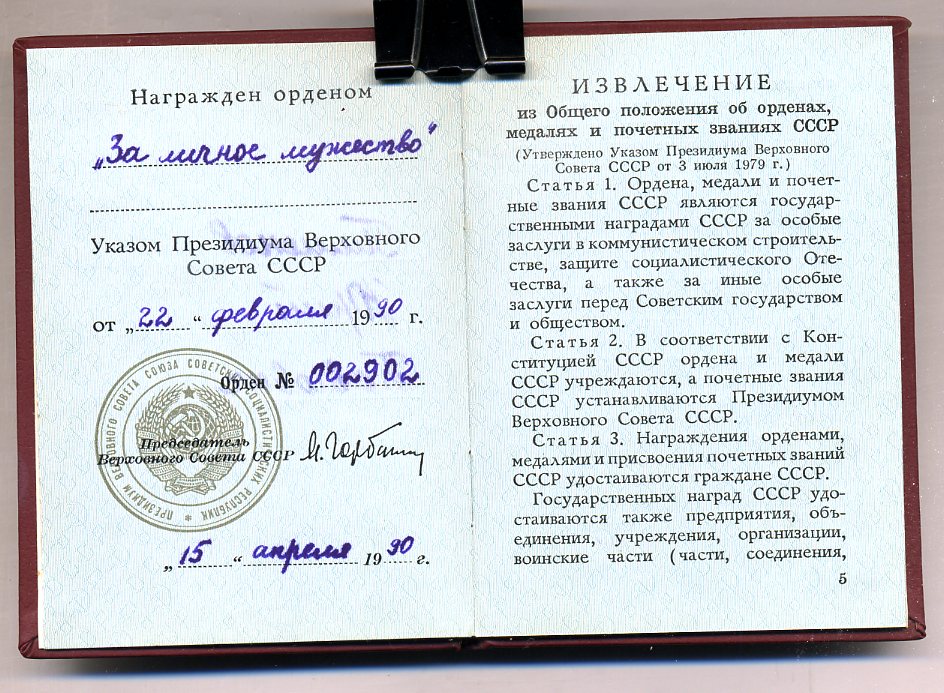 Награжден орденом
„За личное мужество"
Указом Президиума Верховного
Совета СССР
от „22" февраля 1990 г.
Орден № 002902
ПРЕЗИДИУМ ВЕРХОВНОГО СОВЕТА СОЮЗА СОВЕТСКИХ СОЦИАЛИСТИЧЕСКИХ РЕСПУБЛИК
Председатель
Верховного Совета СССР М. Горбачев
„15" апреля 1990 г.
ИЗВЛЕЧЕНИЕ
из Общего положения об орденах,
медалях и почетных званиях СССР
(Утверждено Указом Президиума Верховного
Совета СССР от 3 июля 1979 г.)
Статья 1. Ордена, медали и почет-
ные звания СССР являются государ-
ственными наградами СССР за особые
заслуги в коммунистическом строитель-
стве, защите социалистического Оте-
чества, а также за иные особые
заслуги перед Советским государством
и обществом.
Статья 2. В соответствии с Кон-
ституцией СССР ордена и медали
СССР учреждаются, а почетные звания
СССР устанавливаются Президиумом
Верховного Совета СССР.
Статья 3. Награждения орденами,
медалями и присвоения почетных званий
СССР удостаиваются граждане СССР.
Государственных наград СССР удо-
стаиваются также предприятия, объ-
единения, учреждения, организации,
воинские части (части, соединения,
5